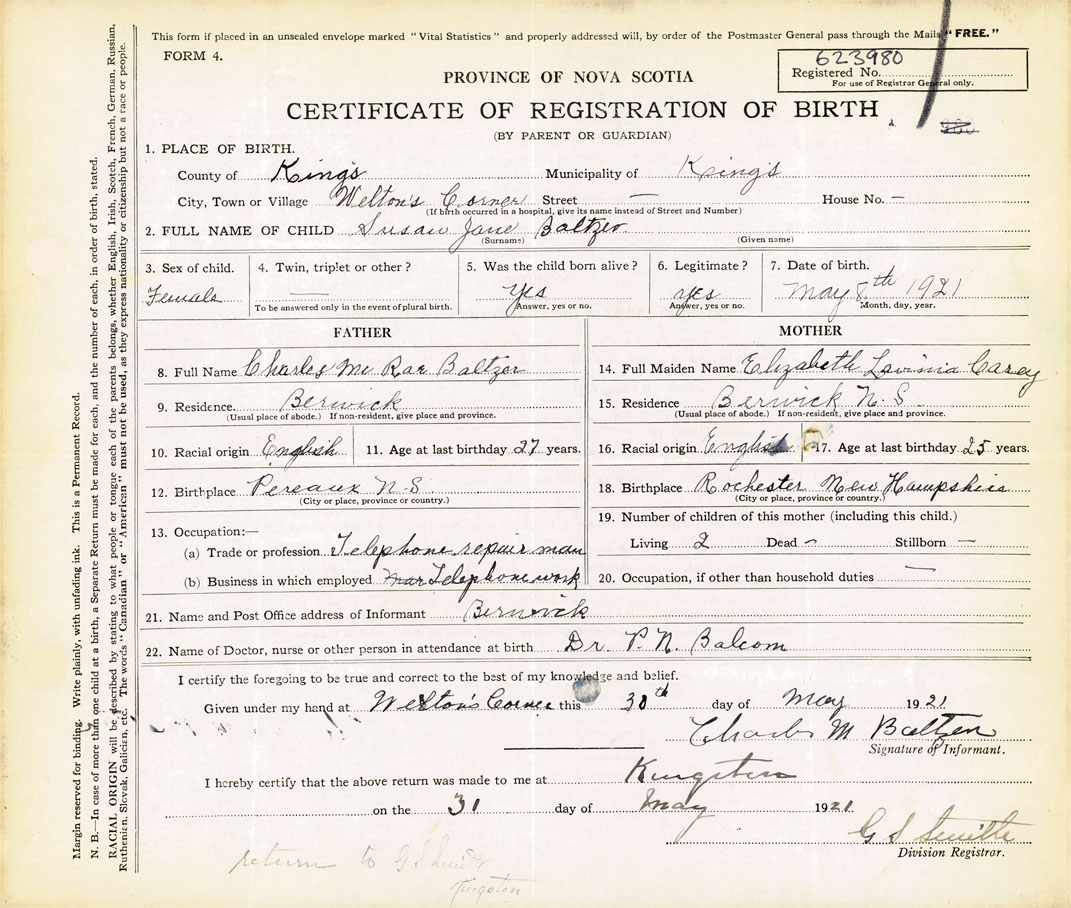 This form if placed in an unsealed envelope marked "Vital Statistics" and properly addressed will, by order of the Postmaster General pass through the Mails "FREE."
FORM 4.
623980
Registered No.
For use of Registrar General only.
PROVINCE OF NOVA SCOTIA
CERTIFICATE OF REGISTRATION OF BIRTH
(BY PARENT OR GUARDIAN)
1. PLACE OF BIRTH.
County of King's Municipality of King's
City, Town or Village Welton's Corner Street — House No. —
(If birth occurred in a hospital, give its name instead of Street and Number)
2. FULL NAME OF CHILD Susan Jane Baltzer
(Surname) (Given name)
3. Sex of child. 4. Twin, triplet or other? 5. Was the child born alive? 6. Legitimate? 7. Date of birth.
Female — Yes yes May 8th 1921
To be answered only in the event of plural birth. Answer, yes or no. Answer, yes or no. Month, day, year.
FATHER
8. Full Name Charles Mc Rae Baltzer
9. Residence. Berwick
(Usual place of abode.) If non-resident, give place and province.
10. Racial origin English 11. Age at last birthday 27 years.
12. Birthplace Pereaux N.S
(City or place, province or country.)
13. Occupation:—
(a) Trade or profession Telephone repair man
(b) Business in which employed Telephone work
MOTHER
14. Full Maiden Name Elizabeth Lavinia Carey
15. Residence Berwick N.S
(Usual place of abode.) If non-resident, give place and province.
16. Racial origin English 17. Age at last birthday 25 years.
18. Birthplace Rochester New Hampshire
(City or place, province or country.)
19. Number of children of this mother (including this child.)
Living 2 Dead — Stillborn —
20. Occupation, if other than household duties —
21. Name and Post Office address of Informant Berwick
22. Name of Doctor, nurse or other person in attendance at birth Dr. P. N. Balcom
I certify the foregoing to be true and correct to the best of my knowledge and belief.
Given under my hand at Welton's Corner this 30th day of May 1921
Charles M Baltzer
Signature of Informant.
I hereby certify that the above return was made to me at Kingston
on the 31 day of May 1921
Division Registrar.
return to G S
Kingston
Margin reserved for binding. Write plainly, with unfading ink. This is a Permanent Record.
N. B.—In case of more than one child at a birth, a Separate Return must be made for each, and the number of each, in order of birth, stated.
RACIAL ORIGIN will be described by stating to what people or tongue each of the parents belongs, whether English, Irish, Scotch, French, German, Russian,
Ruthenian, Slovak, Galician, etc. The words "Canadian" or "American" must not be used, as they express nationality or citizenship but not a race or people.